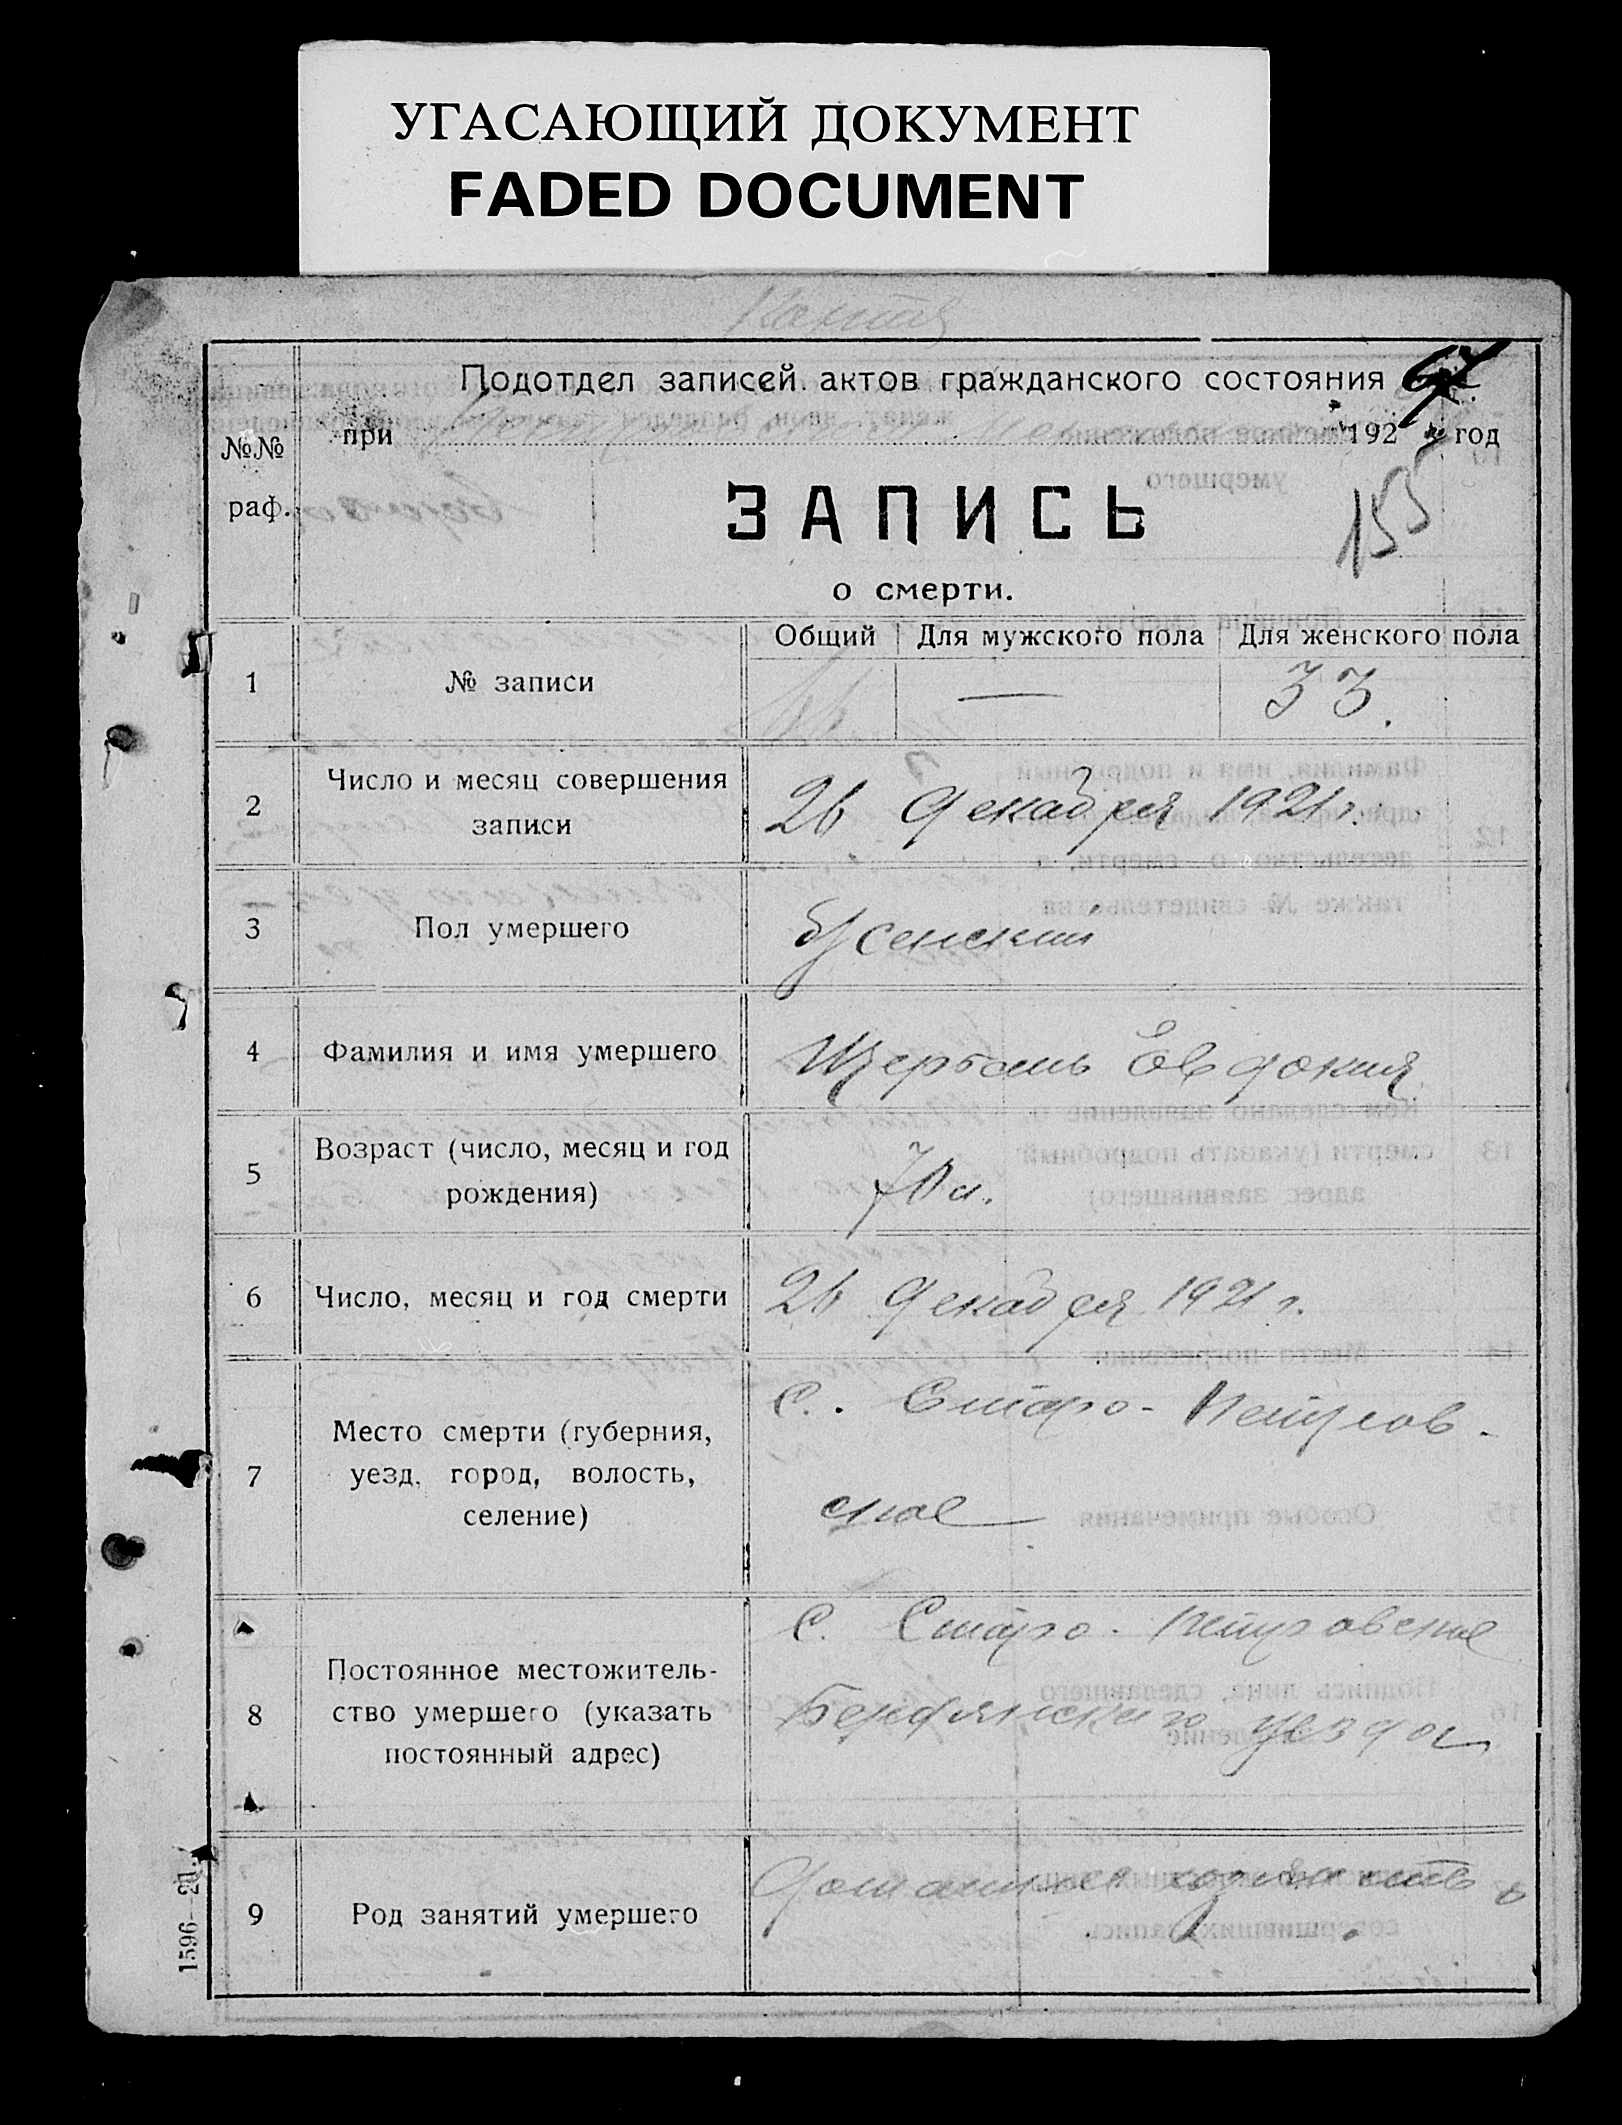 УГАСАЮЩИЙ ДОКУМЕНТ
FADED DOCUMENT
Копия
Подотдел записей актов гражданского состояния 67
при 192 год
155
№№
раф.
ЗАПИСЬ
о смерти.
Общий Для мужского пола Для женского пола
1 № записи — 33.
2 Число и месяц совершения
записи
26 Декабря 1921 г.
3 Пол умершего Женский
4 Фамилия и имя умершего Щербань Евдокия
5 Возраст (число, месяц и год
рождения)
70 л.
6 Число, месяц и год смерти 26 Декабря 1921 г.
7 Место смерти (губерния,
уезд, город, волость,
селение)
С. Старо-Петров-
ское
8 Постоянное местожитель-
ство умершего (указать
постоянный адрес)
С. Старо-Петровское
Бердянского уезда
9 Род занятий умершего Домашнее
1596—21.